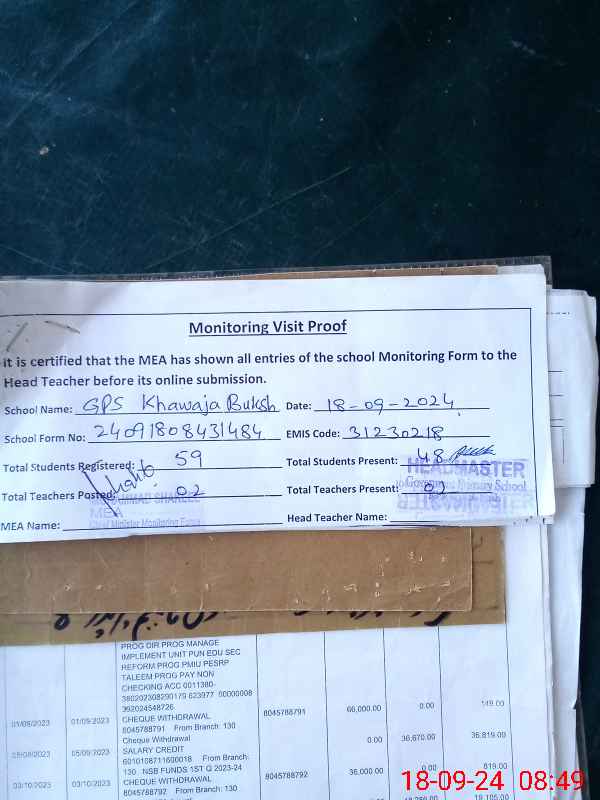 Monitoring Visit Proof
it is certified that the MEA has shown all entries of the school Monitoring Form to the
Head Teacher before its online submission.
School Name: GPS Khawaja Buksh Date: 18-09-2024
School Form No: 24091808431484 EMIS Code: 31230218
Total Students Registered: 59 Total Students Present: 48
HEADMASTER
Total Teachers Posted: 02 Total Teachers Present: 02
Government Primary School
MEA
Chief Minister Monitoring Force
MEA Name: Head Teacher Name:
PROG DIR PROG MANAGE
IMPLEMENT UNIT PUN EDU SEC
REFORM PROG PMIU PESRP
TALEEM PROG PAY NON
CHECKING ACC 0011380-
380202308290179 623977 00000008
392024548726
01/09/2023 01/09/2023 CHEQUE WITHDRAWAL 8045788791 66,000.00 0.00 149.00
8045788791 From Branch: 130
Cheque Withdrawal
05/09/2023 05/09/2023 SALARY CREDIT 0.00 36,670.00 36,819.00
6010108711600018 From Branch:
130 NSB FUNDS 1ST Q 2023-24
03/10/2023 03/10/2023 CHEQUE WITHDRAWAL 8045788792 36,000.00 0.00 819.00
8045788792 From Branch: 130
19,105.00
18-09-24 08:49